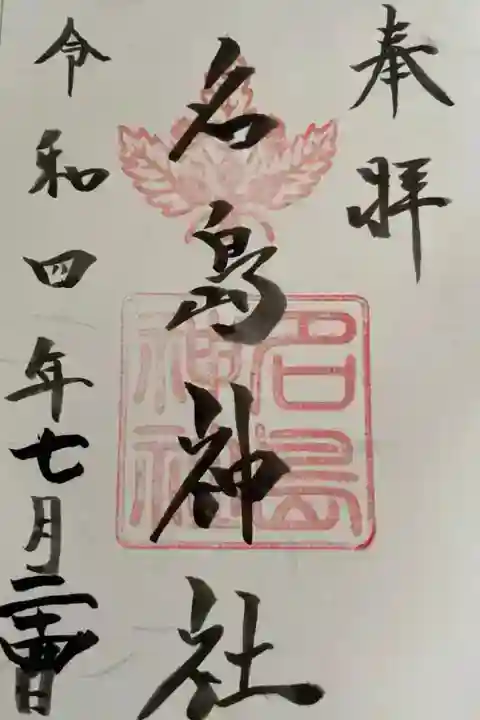 奉拝
名島神社
名島神社
令和四年七月二十四日